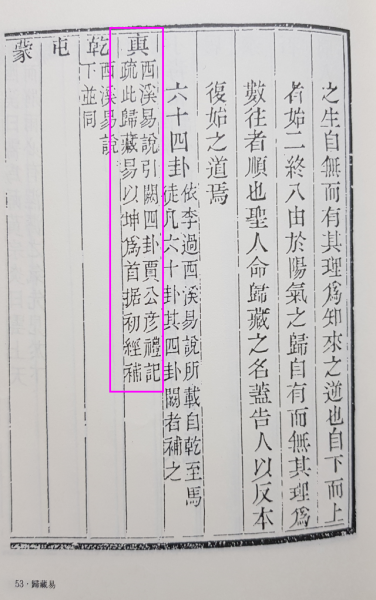 之生自無而有其理爲知來之逆也自下而上
者始二終八由於陽氣之歸自有而無其理爲
數往者順也聖人命歸藏之名蓋告人以反本
復始之道焉
六十四卦
依李過西溪易說所載自乾至馬
徒凡六十卦其四卦闕者補之
西溪易說引闕四卦賈公彥禮記
疏此歸藏易以坤爲首据初經補
乾
西溪易說
下並同
屯
蒙
53·歸藏易